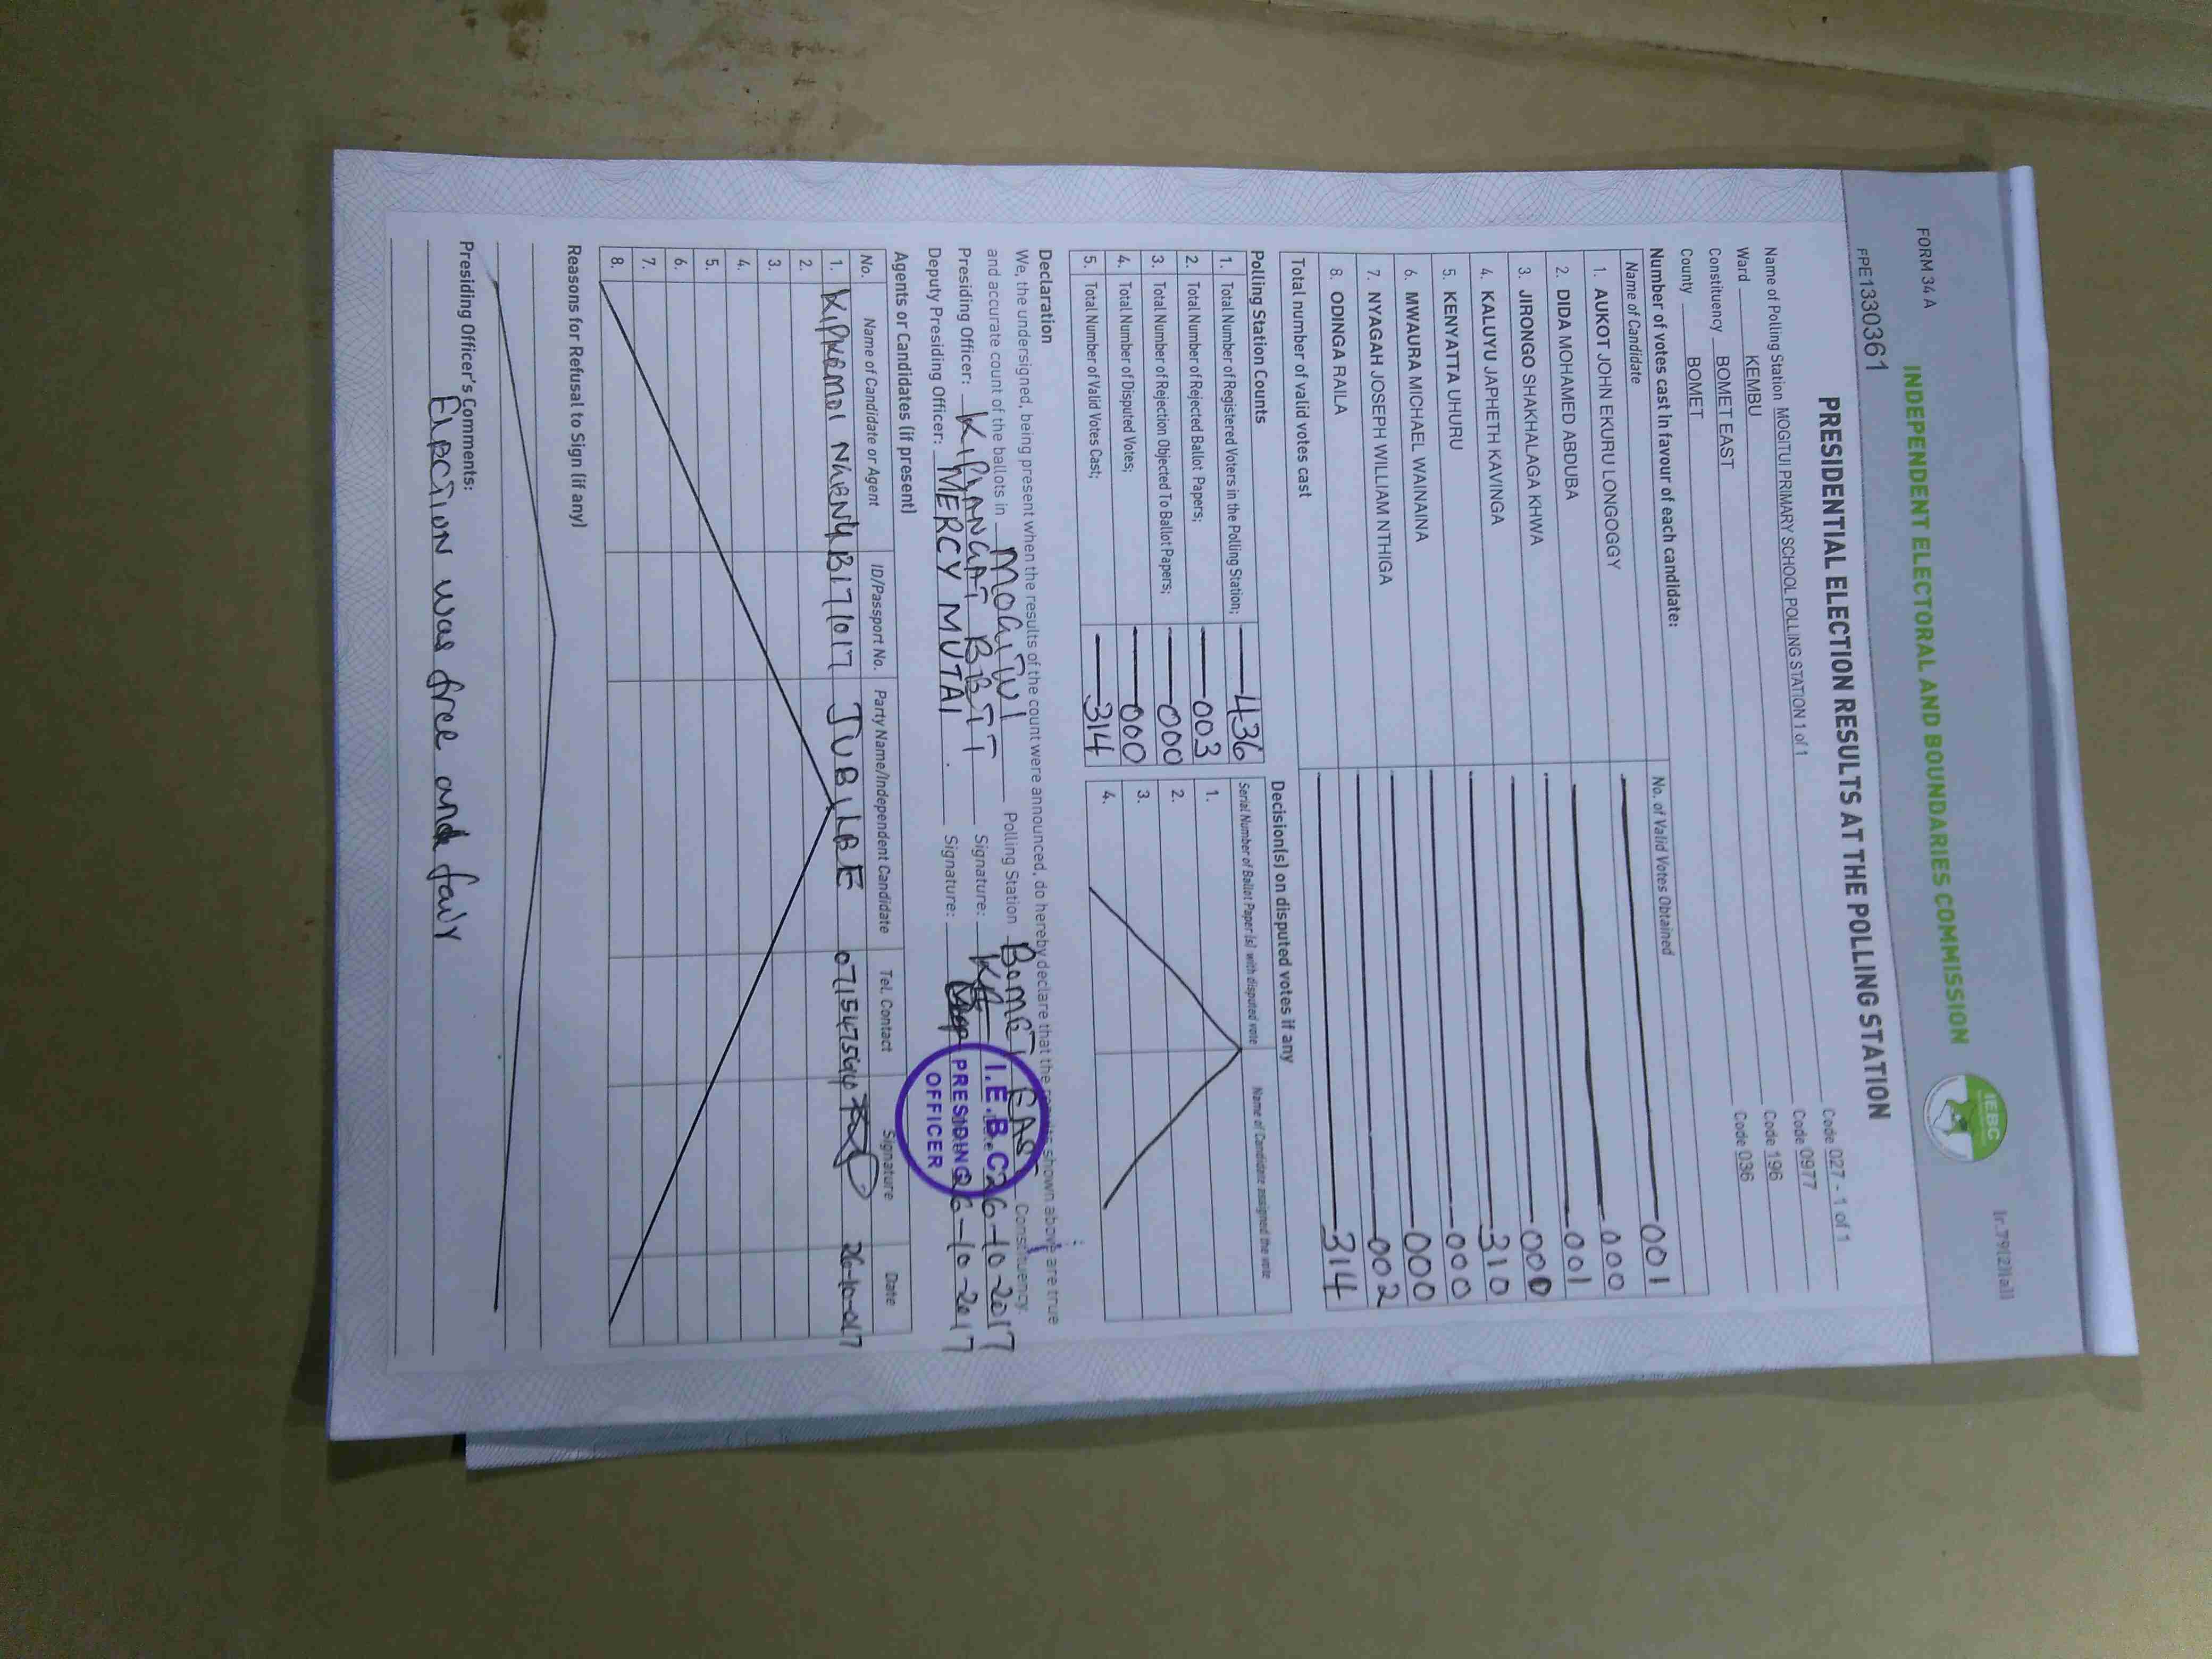 FORM 34 A
(r.79(2)(a))
INDEPENDENT ELECTORAL AND BOUNDARIES COMMISSION
IEBC
FPE1330361
PRESIDENTIAL ELECTION RESULTS AT THE POLLING STATION
Name of Polling Station MOGITUI PRIMARY SCHOOL POLLING STATION 1 of 1 Code 027 - 1 of 1
Ward KEMBU Code 0977
Constituency BOMET EAST Code 196
County BOMET Code 036
Number of votes cast in favour of each candidate:
Name of Candidate No. of Valid Votes Obtained
1. AUKOT JOHN EKURU LONGOGGY 001
2. DIDA MOHAMED ABDUBA 000
3. JIRONGO SHAKHALAGA KHWA 001
4. KALUYU JAPHETH KAVINGA 000
5. KENYATTA UHURU 310
6. MWAURA MICHAEL WAINAINA 000
7. NYAGAH JOSEPH WILLIAM NTHIGA 000
8. ODINGA RAILA 002
Total number of valid votes cast 314
Polling Station Counts
1. Total Number of Registered Voters in the Polling Station; 436
2. Total Number of Rejected Ballot Papers; 003
3. Total Number of Rejection Objected To Ballot Papers; 000
4. Total Number of Disputed Votes; 000
5. Total Number of Valid Votes Cast; 314
Decision(s) on disputed votes if any
Serial Number of Ballot Paper (s) with disputed vote Name of Candidate assigned the vote
1.
2.
3.
4.
Declaration
We, the undersigned, being present when the results of the count were announced, do hereby declare that the results shown above are true
and accurate count of the ballots in MOGITUI Polling Station BOMET EAST Constituency.
Presiding Officer: KIPLANGAT BETT Signature: 26-10-2017
Deputy Presiding Officer: MERCY MUTAI Signature: 26-10-2017
I.E.B.C
PRESIDING
OFFICER
Agents or Candidates (if present)
No. Name of Candidate or Agent ID/Passport No. Party Name/Independent Candidate Tel. Contact Signature Date
1. KIPKEMOI JUBILEE 26-10-017
2.
3.
4.
5.
6.
7.
8.
Reasons for Refusal to Sign (if any)
Presiding Officer's Comments:
Election was free and fair